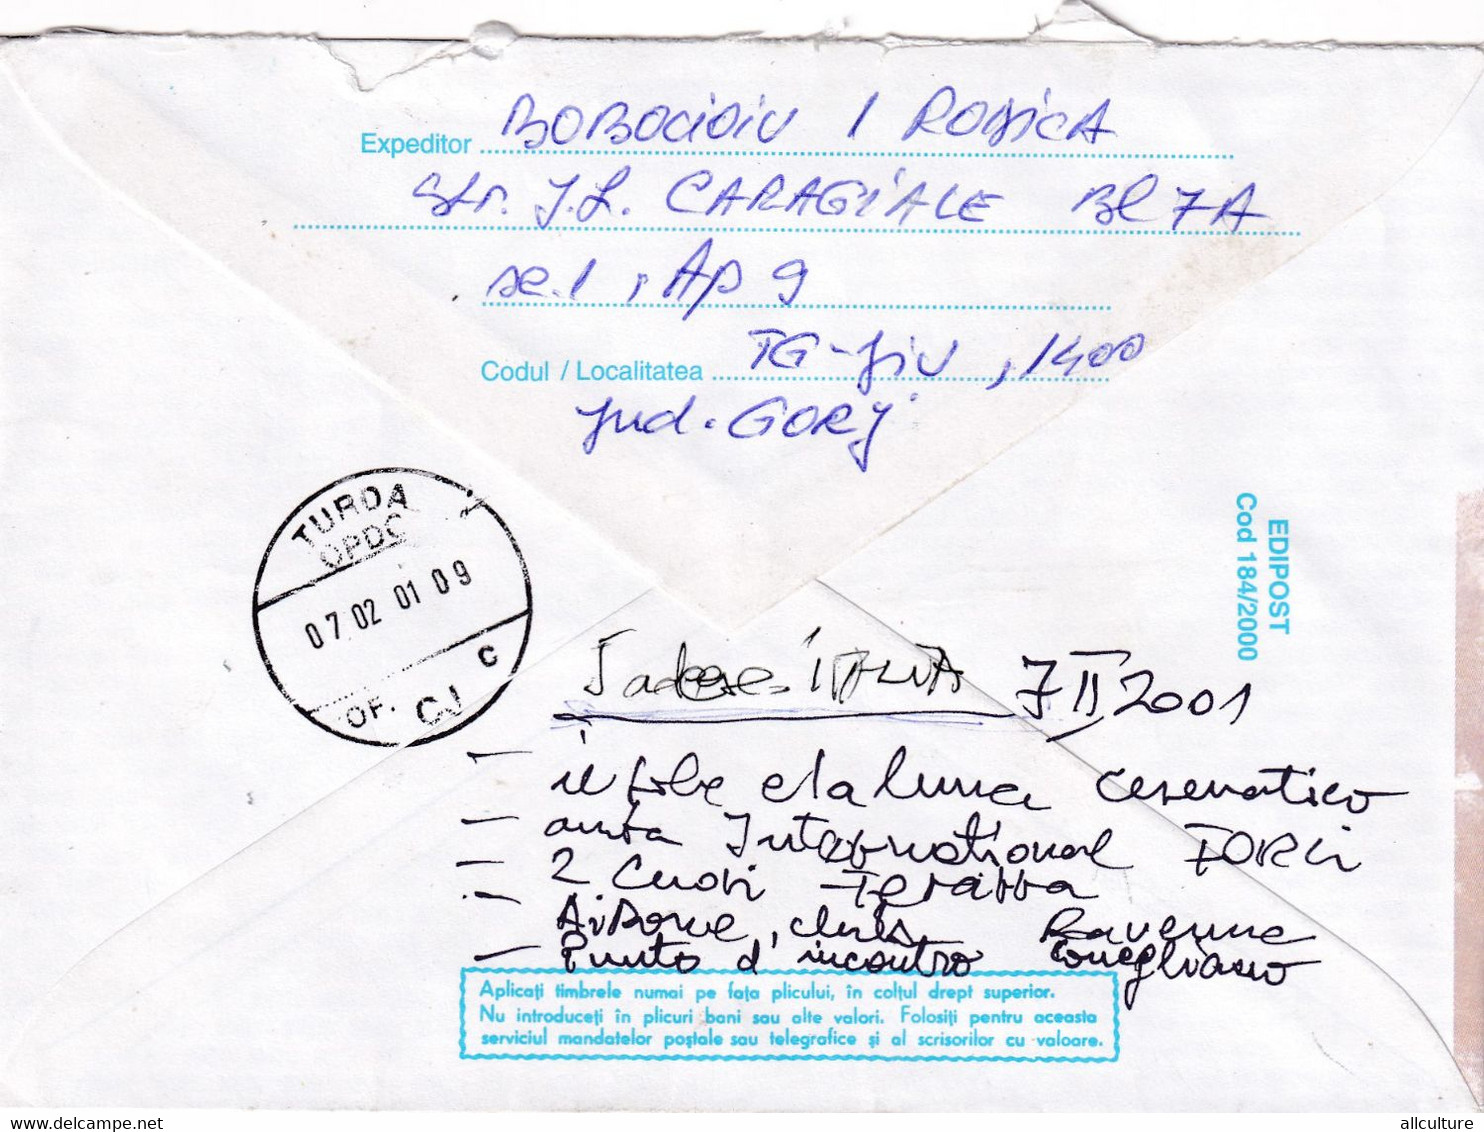 Expeditor BOBOCIOIU I RODICA
Str. I.L. CARAGIALE BL 7A
sc.1, Ap 9
Codul / Localitatea TG-Jiu, 1400
jud. GORJ
TURDA
OPDC
07.02 01 09
C
OF. CJ
EDIPOST
Cod 184/2000
5 adrese ITALIA 7 II 2001
- il sole e la luna cesenatico
- Internațional FORLI
- 2 Cuori Ferarra
- Airone, clubs Ravenna
- Punto d'incontro Conegliano
Aplicați timbrele numai pe fața plicului, în colțul drept superior.
Nu introduceți în plicuri bani sau alte valori. Folosiți pentru aceasta
serviciul mandatelor poștale sau telegrafice și al scrisorilor cu valoare.
www.delcampe.net
allculture